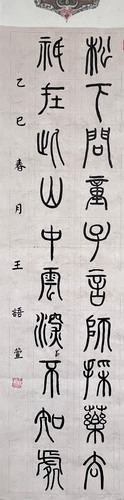 松下問童子言師採藥去
祇在此山中雲深不知處
乙巳春月王語萱